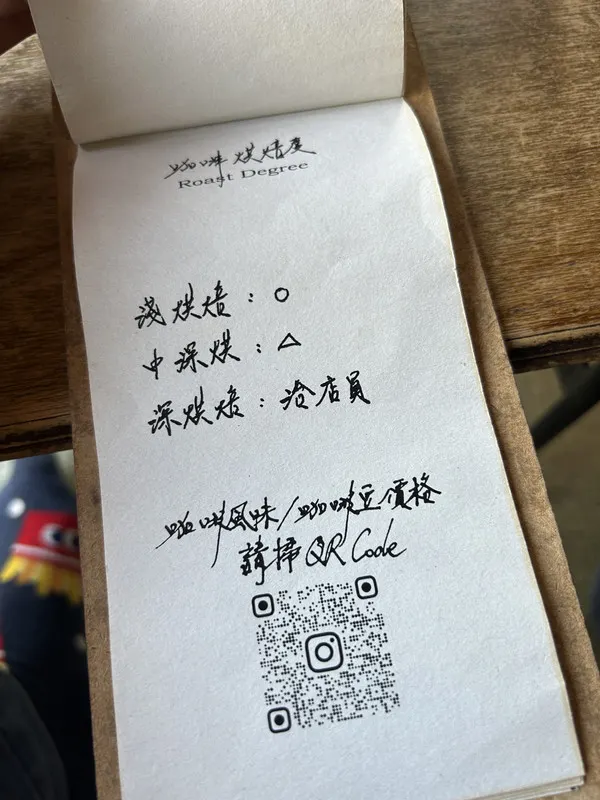 咖啡烘焙度
Roast Degree
淺烘焙：○
中深烘：△
深烘焙：洽店員
咖啡風味/咖啡豆價格
請掃QR Code